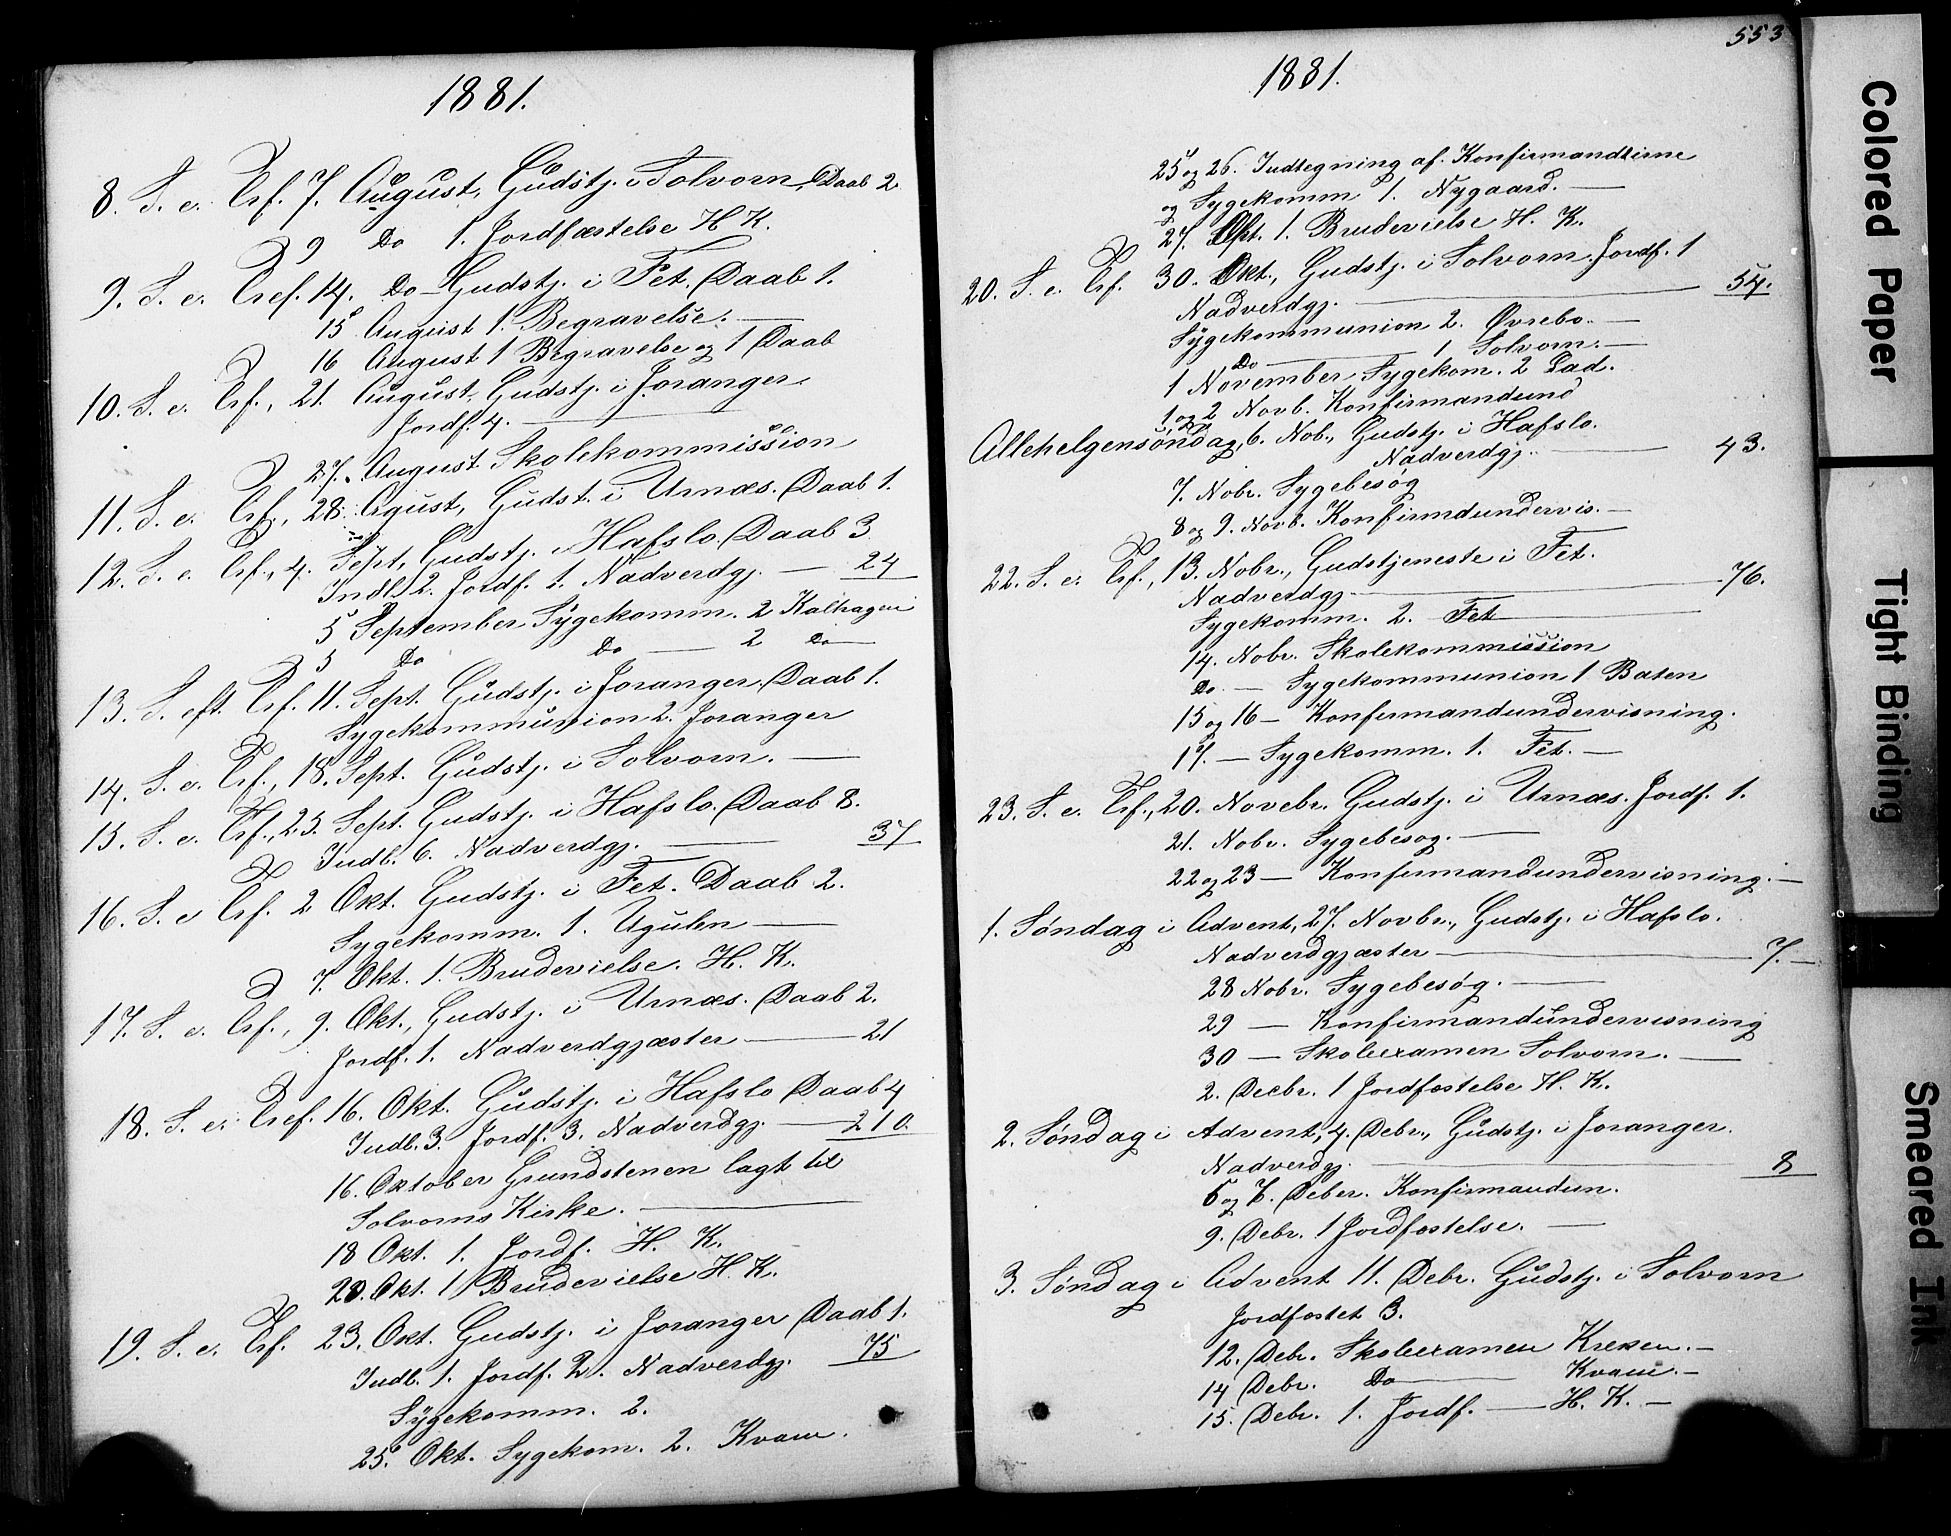 1881.
8. S. e. Tref. 7. August, Gudstj. i Solvorn, Daab 2.
9 Do 1. Jordfæstelse H K.
9. S. e. Tref. 14. Do Gudstj. i Fet. Daab 1.
15 August 1. Begravelse. —
16 August 1 Begravelse og 1 Daab
10. S. e. Trf., 21. August, Gudstj. i Joranger.
Jordf. 4. —
27. August Skolekommission
11. S. e. Trf., 28. Agust, Gudst. i Urnæs. Daab 1.
12. S. e. Trf., 4. Sept, Gudstj. i Hafslo. Daab 3
Indl. 2. Jordf. 1. Nadverdgj. — 24
5 September Sygekomm. 2 Kalhagen
5 Do Do — 2 Do —
13. S. eft. Trf. 11. Sept. Gudstj. i Joranger. Daab 1.
Sygekommunion 2. Joranger
14. S. e. Trf., 18. Sept. Gudstj. i Solvorn. —
15. S. e. Trf., 25. Sept. Gudstj. i Hafslo. Daab 8.
Indl. 6. Nadverdgj. — 37
16. S. e Trf. 2 Okt. Gudstj. i Fet. Daab 2.
Sygekomm. 1. Ugulen —
7. Okt. 1. Brudevielse. H. K.
17. S. e. Trf., 9. Okt., Gudstj. i Urnæs. Daab 2.
Jordf. 1. Nadverdgjæster — 21
18. S. e. Tref. 16. Okt. Gudstj. i Hafslo Daab 4
Indl. 3. Jordf. 3. Nadverdgj. — 210.
16. Oktober Grundstenen lagt til
Solvorns Kirke. —
18 Okt. 1. Jordf. H. K.
20. Okt. 1 Brudevielse H. K.
19. S. e. Trf. 23. Okt. Gudstj. i Joranger Daab 1.
Indl. 1. Jordf. 2. Nadverdgj. 75
Sygekomm. 2.
25. Okt. Sygekom. 2. Kvam.
553
1881.
25 og 26. Indtegning af Konfirmandterne
og Sygekomm 1. Nygaard. —
27. Opt. 1. Brudevielse H. K.
20. S. e. Trf. 30. Okt., Gudstj. i Solvorn. Jordf. 1
Nadverdgj. — 54.
Sygekommunion 2. Øvrebo. —
Do — 1 Solvorn. —
1 November Sygekom. 2 Lad.
1 og 2 Novb. Konfirmandund
Allehelgensøndag, 6. Nob., Gudstj. i Hafslo.
Nadverdgj. — 43.
7. Nobr. Sygebesøg
8 og 9. Novb. Konfirmdundervis. —
22. S. e. Trf., 13. Nobr., Gudstjeneste i Fet.
Nadverdgj. — 76.
Sygekomm. 2. Fet —
14. Nobr. Skolekommission
Do. — Sygekommunion 1 Baten
15 og 16 — Konfirmandundervisning.
17. — Sygekomm. 1. Fet. —
23. S. e. Trf., 20. Novebr. Gudstj. i Urnæs. Jordf. 1.
21. Nobr. Sygebesøg. —
22 og 23 — Konfirmandundervisning. —
1. Søndag i Advent, 27. Novbr., Gudstj. i Hafslo.
Nadverdgjæster — 7. —
28 Nobr. Sygebesøg. —
29 — Konfirmandundervisning
30 — Skoleexamen Solvorn. —
2. Decbr. 1 Jordfæstelse H. K.
2. Søndag i Advent, 4. Debr., Gudstj. i Joranger.
Nadverdgj. — 8
6 og 7. Deber. Konfirmandun.
9. Debr. 1 Jordfæstelse. —
3. Søndag i Advent 11. Debr. Gudstj. i Solvorn
Jordfæstet 3.
12. Debr. Skoleexamen Kreken. —
14 Debr. Do — Kvam. —
15. Debr. 1. Jordf. — H. K. —
Colored Paper
Tight Binding
Smeared Ink